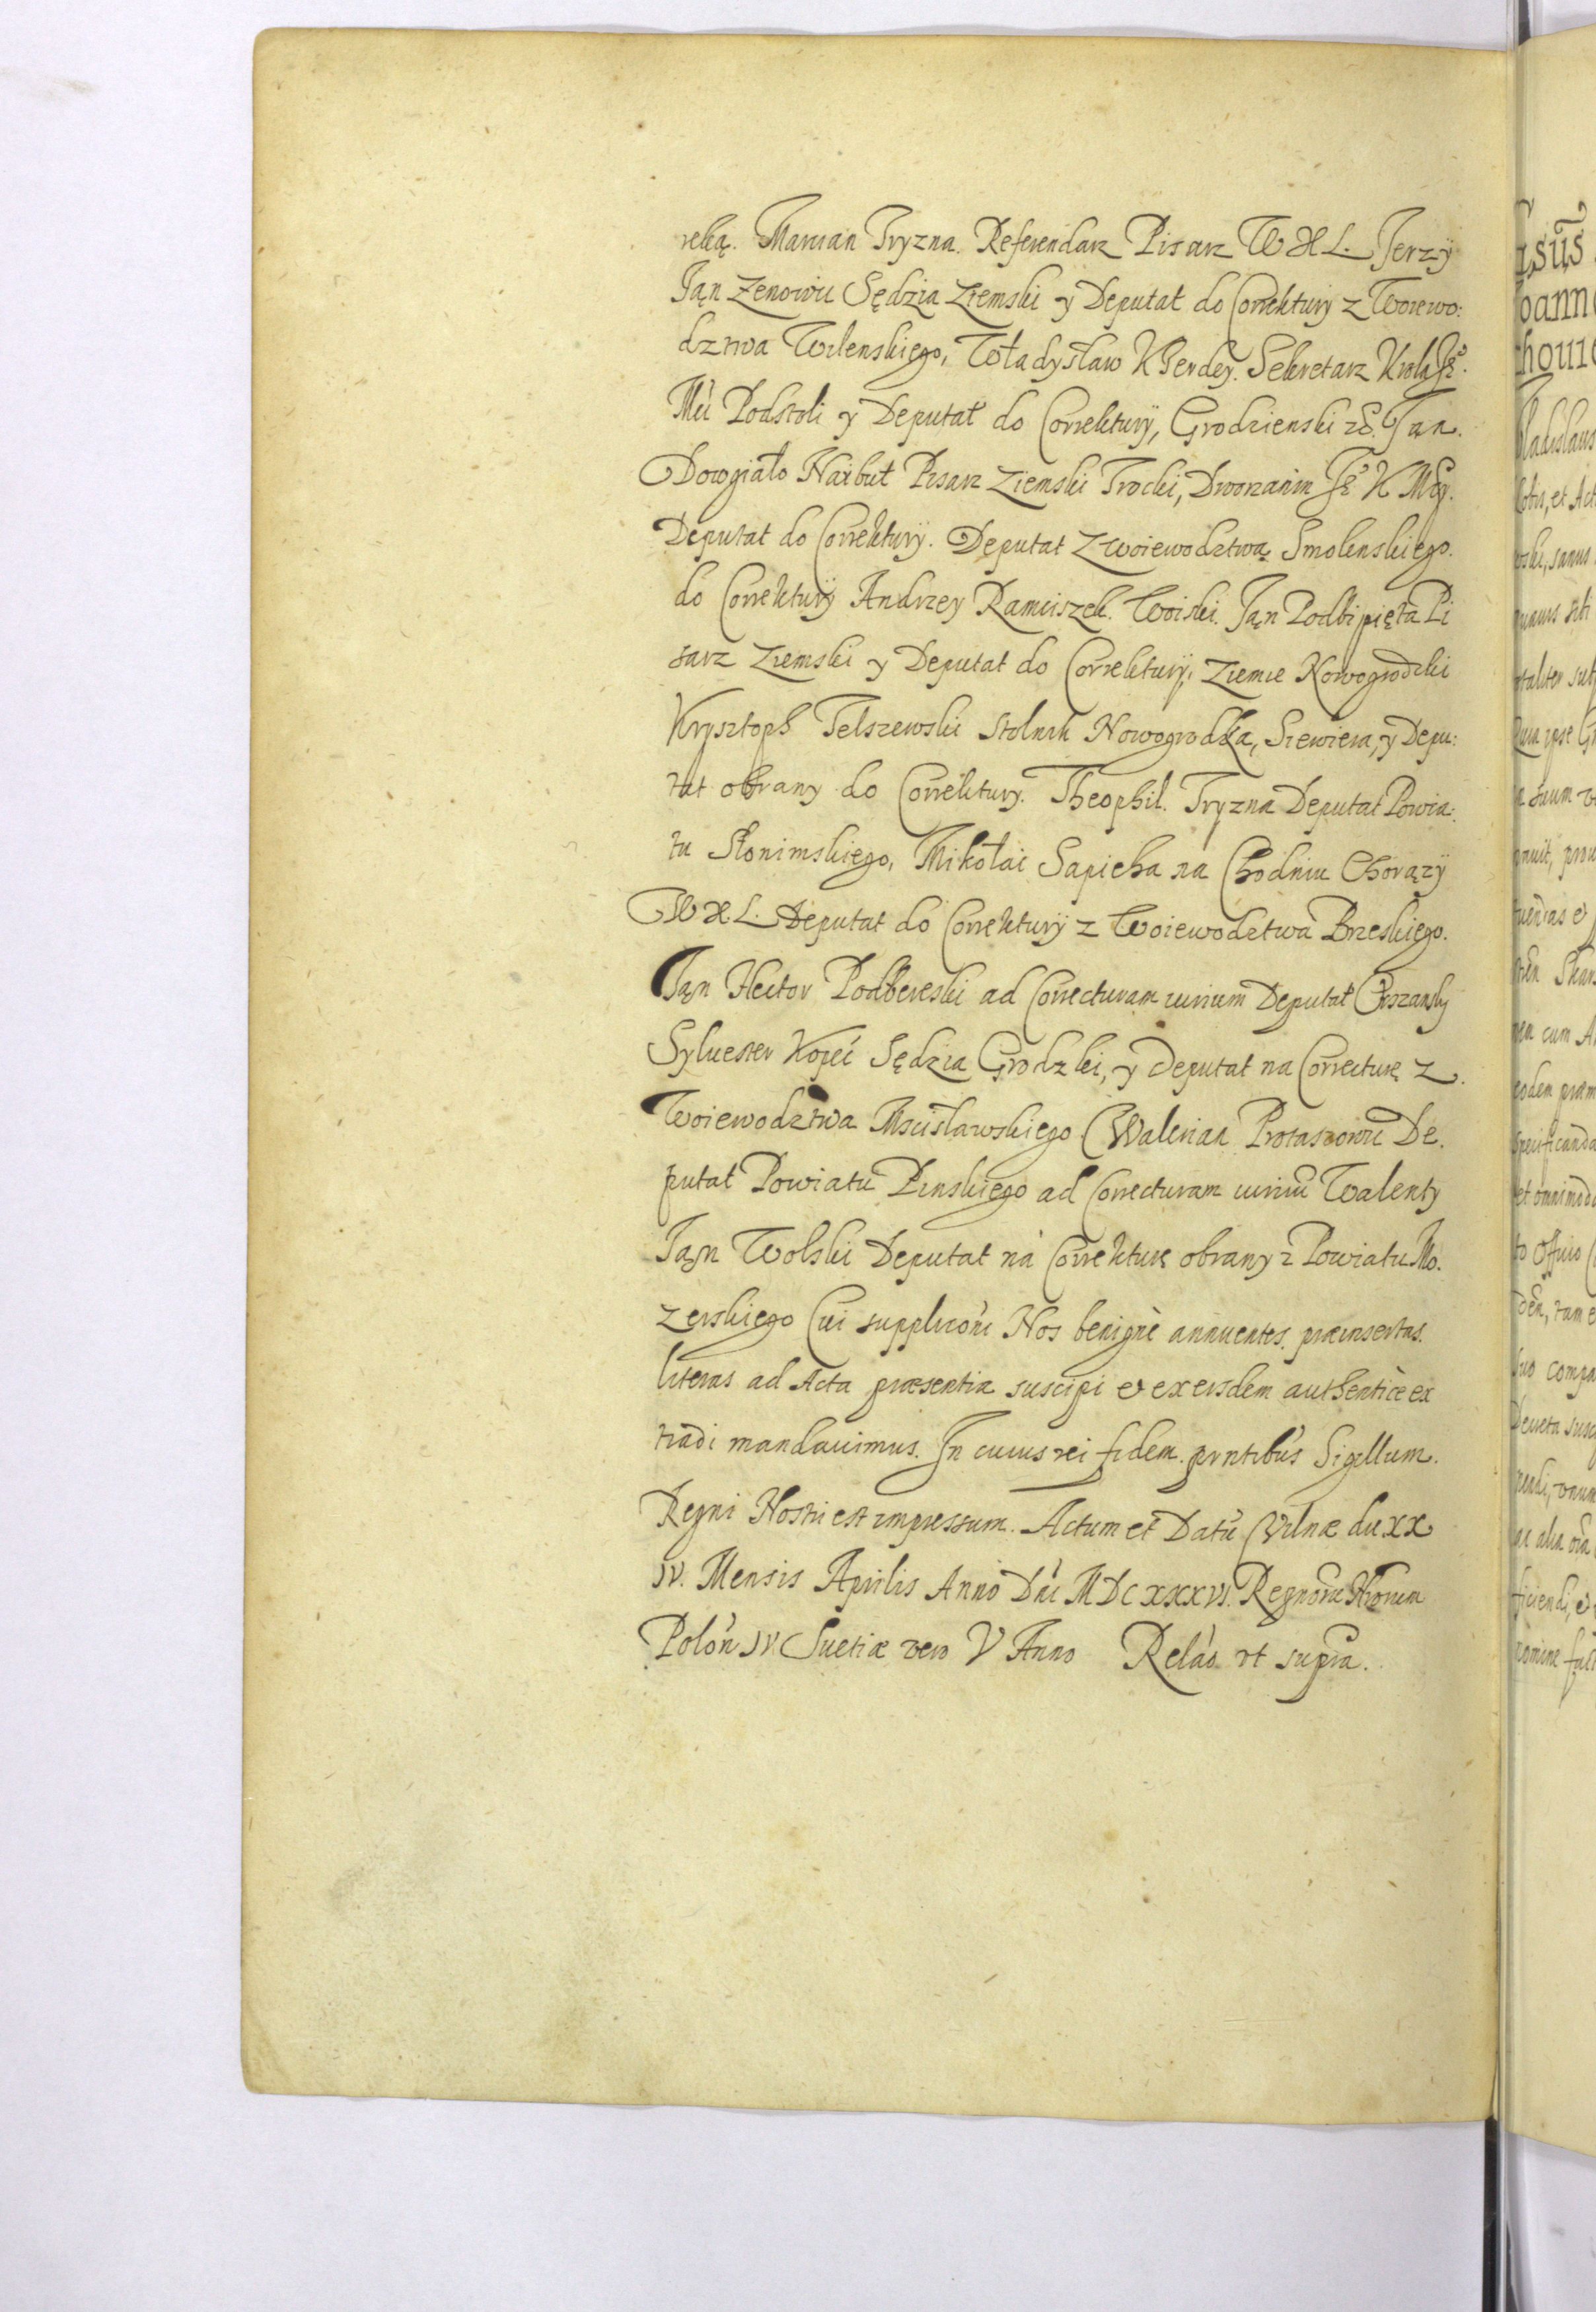 ręką. Marcian Tryzna. Referendarz Pisarz W X L. Jerzÿ
Jąn Zenowic Sędzia Ziemski y Deputat do Correkturÿ z Woiewo:
dztwa Wilenskiego, Władysław KHerdey. Sekretarz Krola Je͞o.
Mci Podstoli y Deputat do Correkturÿ, Grodzienski Jan.
Dowgiało Narbut Pisarz Ziemski Trocki, Dworzanin Je͞o K Mści.
Deputat do Correkturÿ. Deputat z woiewodztwą Smolenskiego.
do Correkturÿ Andrzey Ramciszek. Woiski. Jąn Podbipięta Pi
sarz Ziemski y Deputat do Correkturÿ, Ziemie Nowogrodzki
Krysztoph Telszewski Stolnik Nowogrodka, Siewiera, y Depu:
tat obrany do Correktury. Theophil. Tryzna Deputat Powia:
tu Słonimskiego, Mikołai Sapieha na Chodniu Chorązÿ
W X. L. Deputat do Correkturÿ z Woiewodztwa Brzeskiego.
Jąn Hector Podbereski ad Correcturam iurium Deputat Orszansky
Syluester Kopeć Sędzia Grodzki, y Deputat na Correcturę z.
Woiewodztwa Mscisławskiego Walerian Protasowic De.
putat Powiatu Pinskiego ad Correcturam iuriu͞ Walenty
Jąn Wolski Deputat na Correkturę obrany z Powiatu Mo.
zerskiego Cui supplicōni Nos benignè annuentes. præinsertas.
literas ad Acta præsentia suscipi et ex eisdem authenticè ex
tradi mandauimus. In cuius rei fidem. prntibus Sigillum.
Regni Nostri est impressum. Actum et Datu͞ Vilnæ die XX
IV. Mensis Aprilis Anno Dni MDCXXXVI. Regnoru͞ Nrorum
Polon IV. Suetiæ vero V Anno Relāo vt supra.